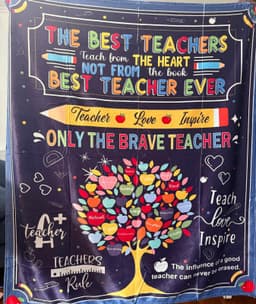 THE BEST TEACHERS
Teach from THE HEART
NOT FROM the book
BEST TEACHER EVER
Teacher Love Inspire
ONLY THE BRAVE TEACHER
A+
teacher
Teach
Love
Inspire
TEACHERS
Rule
The influence of a good
teacher can never be erased.